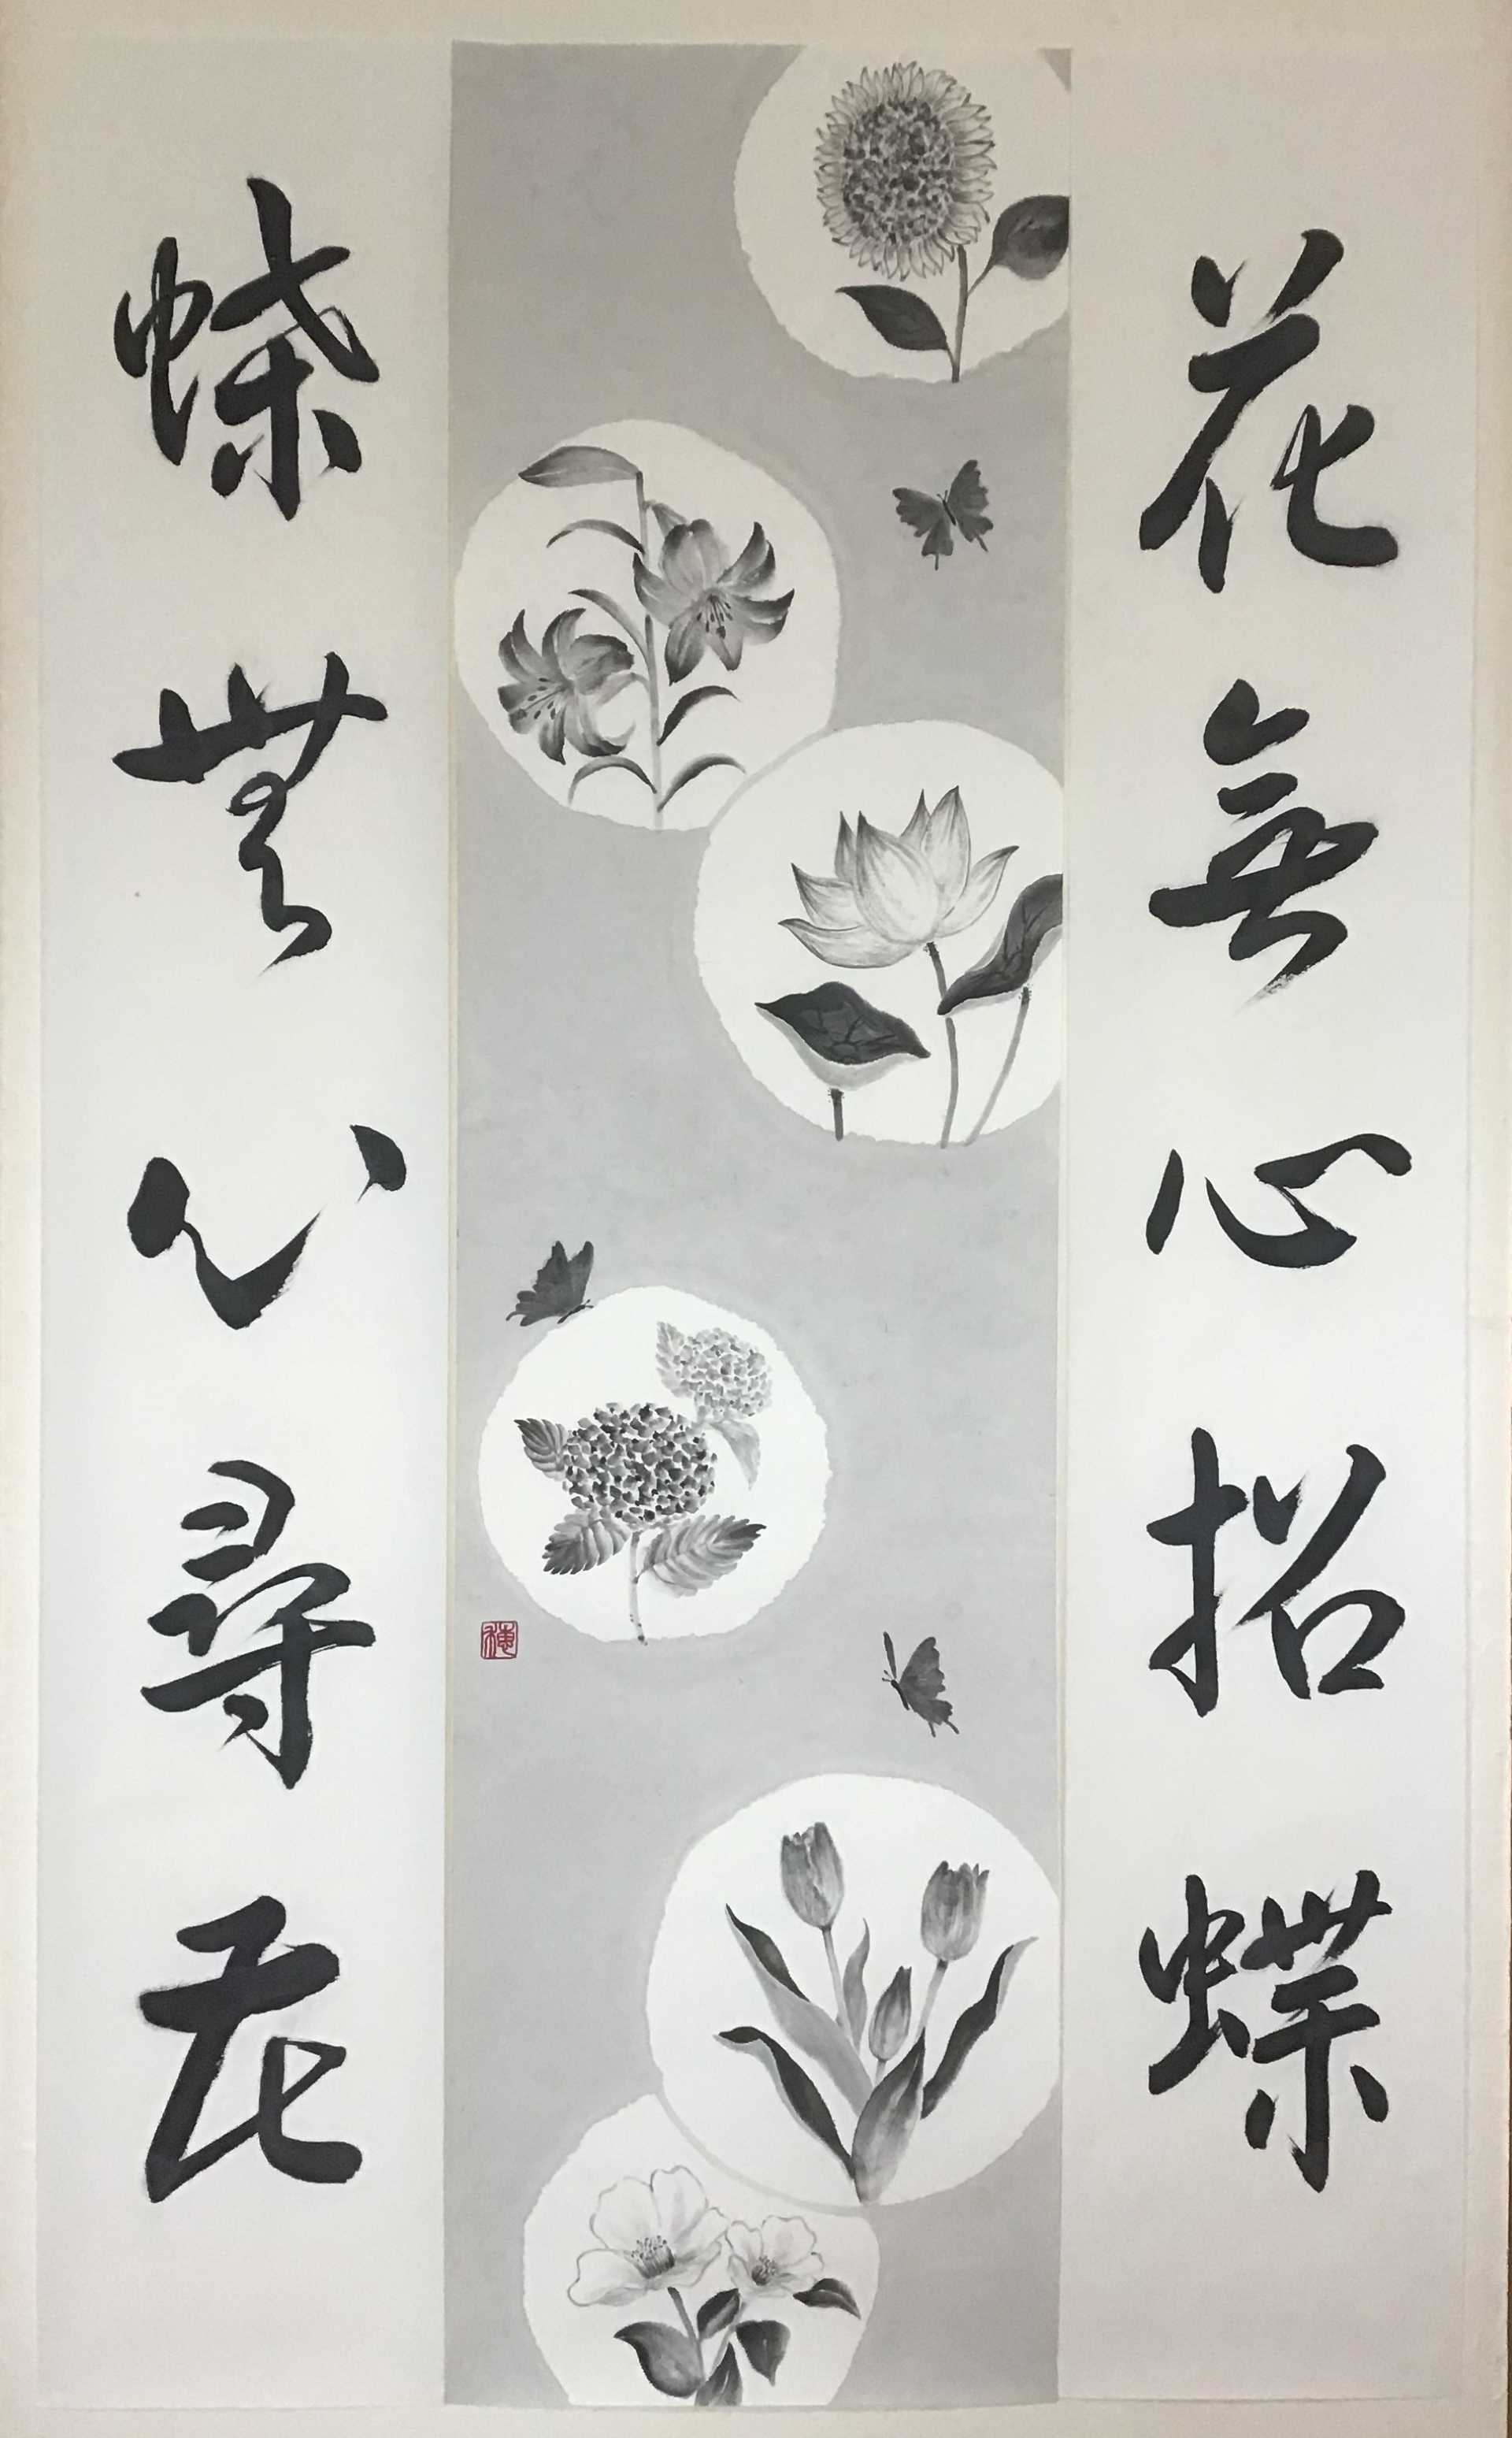 花無心招蝶
蝶無心尋花
穂